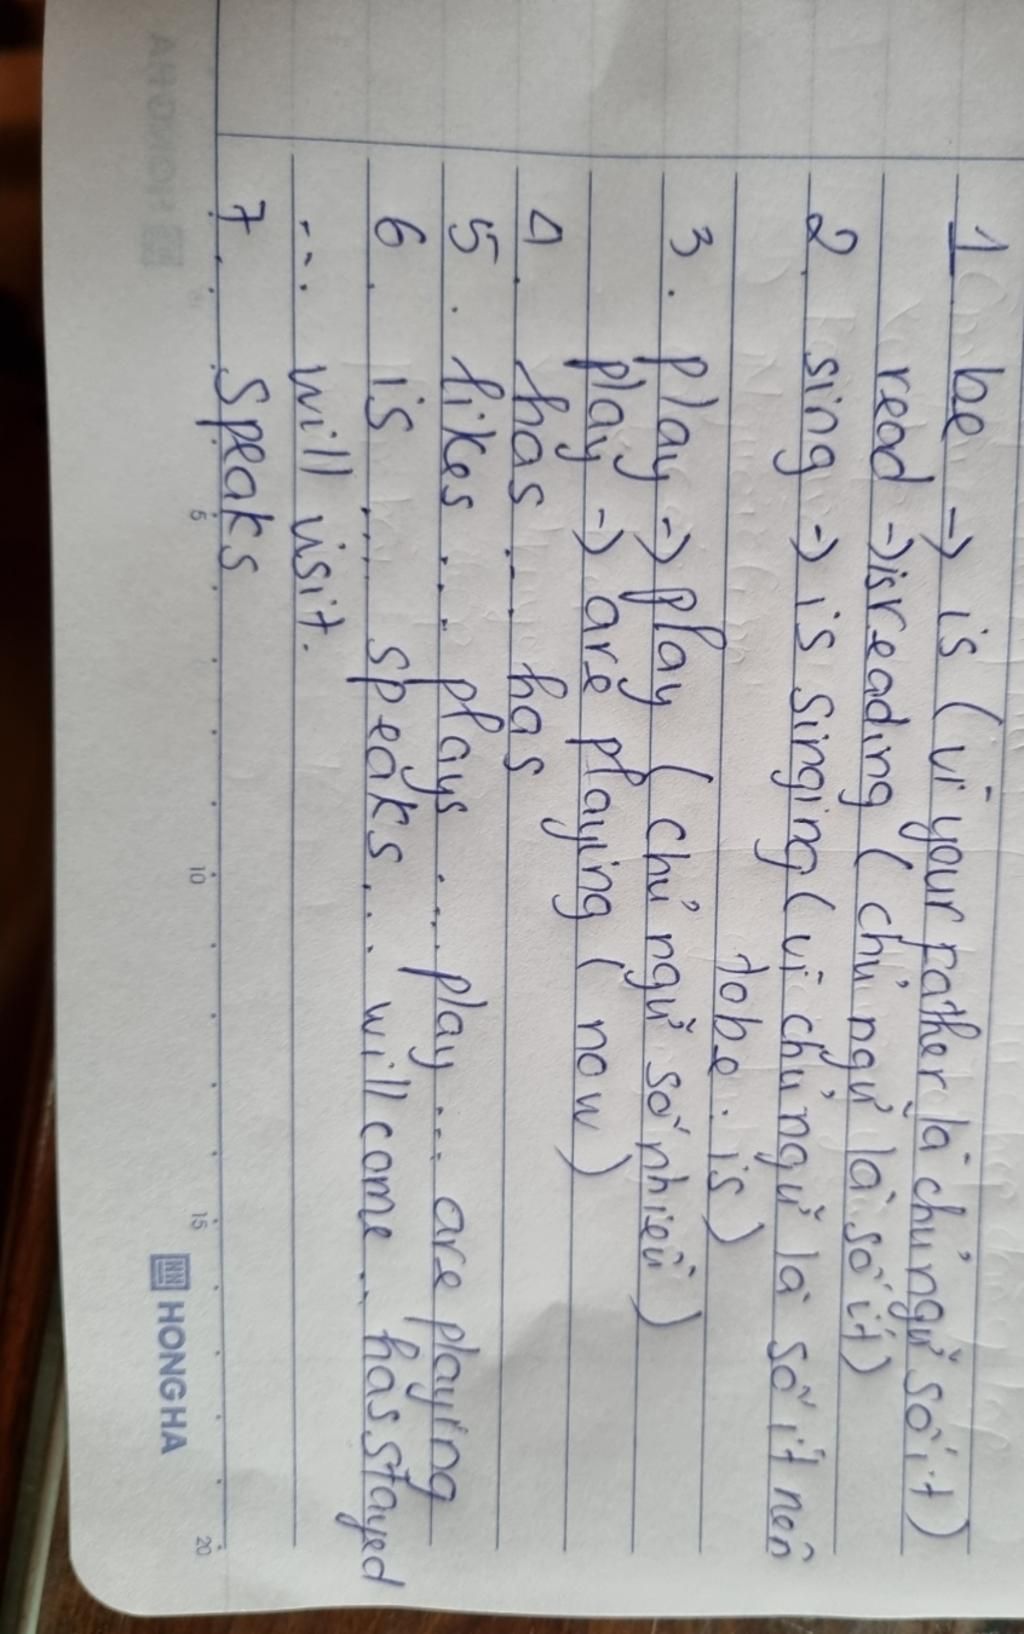 1 be -> is (vì your father là chủ ngữ số ít)
read -> is reading (chủ ngữ là số ít)
2. sing -> is singing (vì chủ ngữ là số ít nên
tobe: is)
3. play -> play (chủ ngữ số nhiều)
play -> are playing (now)
4. has .... has
5. likes .... plays .... play .... are playing
6. is .... speaks .... will come ... has stayed
.... will visit.
7. speaks
5 10 15 20
HONG HA